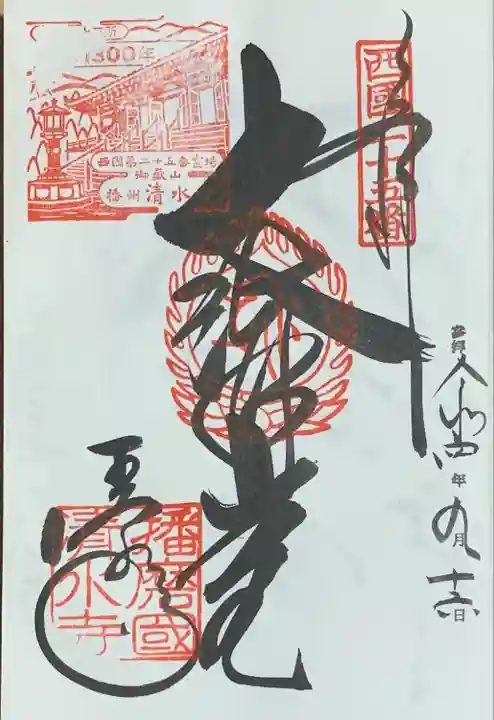 西國二十五番
奉拝
参拝 令和四年九月十六日
大悲光
1300年
西国第二十五番霊場
御嶽山
播州 清水
清水寺
播磨國
清水寺